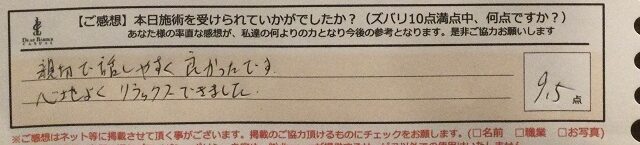 【ご感想】本日施術を受けられていかがでしたか？（ズバリ10点満点中、何点ですか？）
あなた様の率直な感想が、私達の何よりの力となり今後の参考となります。是非ご協力お願いします
親切で話しやすく良かったです
心地よくリラックスできました
9.5点
※ご感想はネット等に掲載させて頂く事がございます。掲載のご協力頂けるものにチェックをお願します。（□名前 □職業 □お写真）